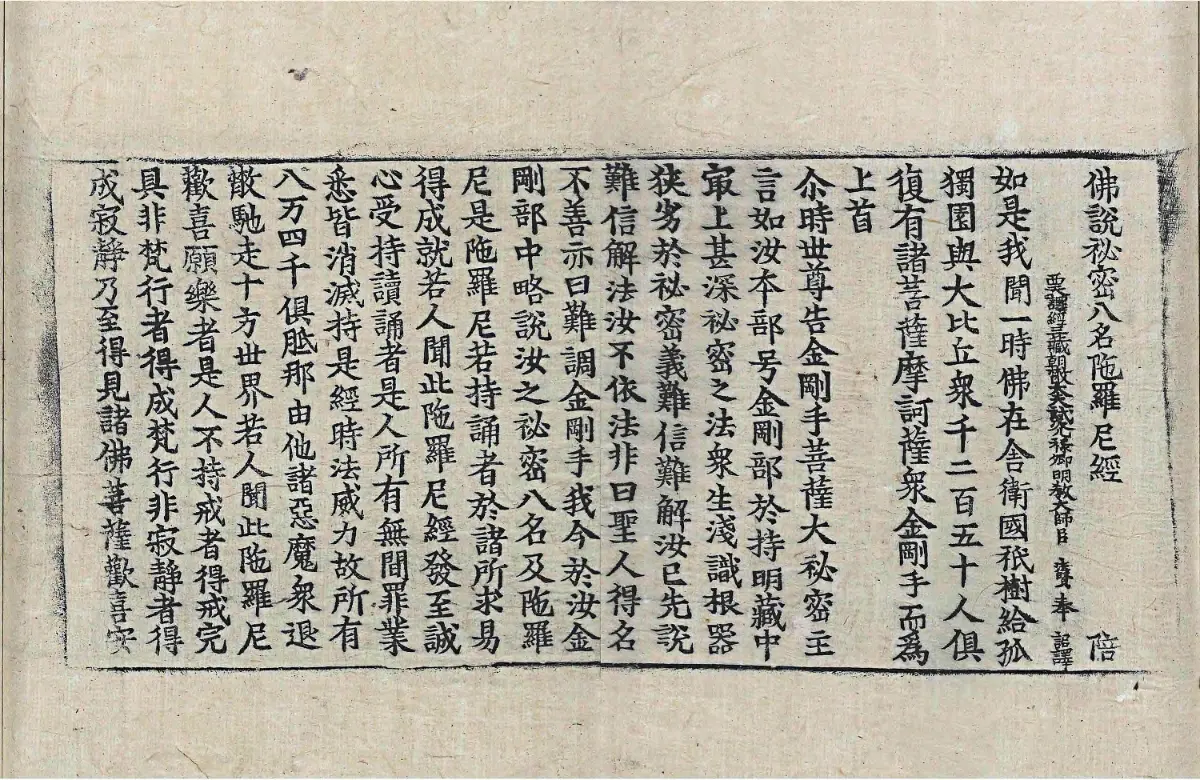 佛說秘密八名陁羅尼經 陪
西天譯經三藏朝散大夫試鴻臚少卿明教大師臣 法賢奉 詔譯
如是我聞一時佛在舍衛國祇樹給孤
獨園與大比丘衆千二百五十人俱
復有諸菩薩摩訶薩衆金剛手而爲
上首
尒時世尊告金剛手菩薩大秘密主
言如汝本部号金剛部於持明藏中
㝡上甚深秘密之法衆生淺識根器
狹劣於祕密義難信難解汝已先說
難信解法汝不依法非曰聖人得名
不善亦曰難調金剛手我今於汝金
剛部中略說汝之秘密八名及陁羅
尼是陁羅尼若持誦者於諸所求易
得成就若人聞此陁羅尼經發至誠
心受持讀誦者是人所有無間罪業
悉皆消滅持是經時法威力故所有
八万四千俱胝那由他諸惡魔衆退
散馳走十方世界若人聞此陁羅尼
歡喜願樂者是人不持戒者得戒完
具非梵行者得成梵行非寂靜者得
成寂靜乃至得見諸佛菩薩歡喜安